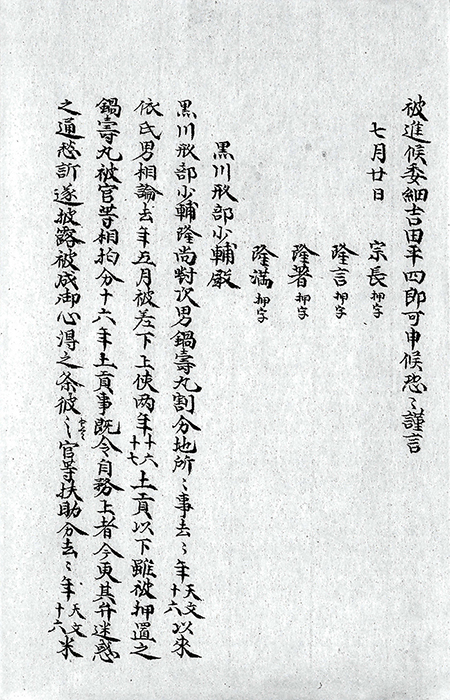 被進候委細吉田平四郎可申候恐々謹言
七月廿日　宗長押字
隆言押字
隆著押字
隆満押字
黒川刑部少輔殿
黒川刑部少輔隆尚對次男鍋壽丸割分地所々事去々年天文十六以来
依氏男相論去年五月被差下上使両年十六十七土貢以下雖被押置之
鍋壽丸被官等相拘分十六年土貢事既令自務上者今更其弁迷惑
之通愁訴遂披露被成御心得之条彼々官等扶助分去々年天文十六米